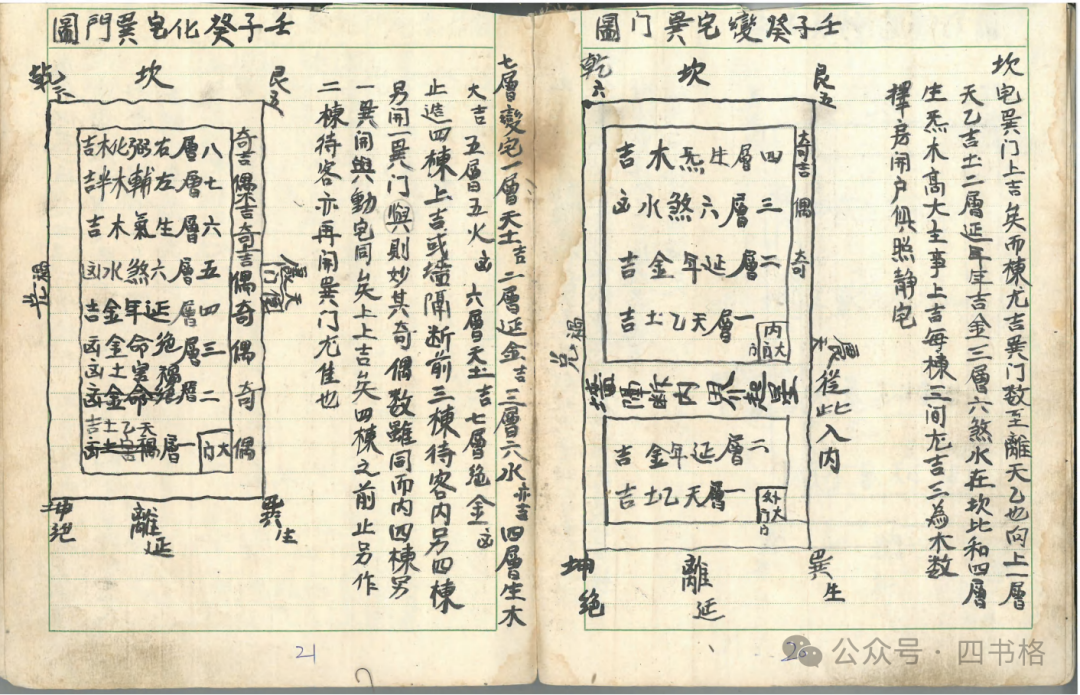 壬子癸變宅巽门圖
坎宅巽门上吉矣而棟尤吉巽门数至離天乙也向上一層
天乙吉土二層延年吉金三層六煞水在坎比和四層
生炁木高大主事上吉每棟三间尤吉三為木数
擇房開户俱照静宅
艮五
坎
乾六
奇吉
四層生炁木吉
偶
三層六煞水凶
奇
二層延年金吉
一層天乙土吉
内大门
震天
從此入内
禍
兑
墻隔断内另起量
二層延年金吉
一層天乙土吉
外大门
巽生
離延
坤絶
20
公众号·四书格
壬子癸化宅巽門圖
七層變宅一層天土吉二層延金吉三層六水亦吉四層生木
大吉五層五火凶六層天土吉七層絶金凶
止造四棟上吉或墻隔断前三棟待客内另四棟
另開一巽门與则妙其奇偶数雖同而内四棟另
一巽開與動宅同矣上上吉矣四棟之前止另作
二棟待客亦再開巽门尤佳也
艮五
坎
乾六
奇吉
八層右弼化木吉
偶不吉
七層左輔木半吉
奇吉
六層生氣木吉
偶
五層六煞水凶
奇
四層延年金吉
偶
三層絶命金凶
奇
二層
偶
一層
大门
震天
禍
兑
巽生
離延
坤絶
21